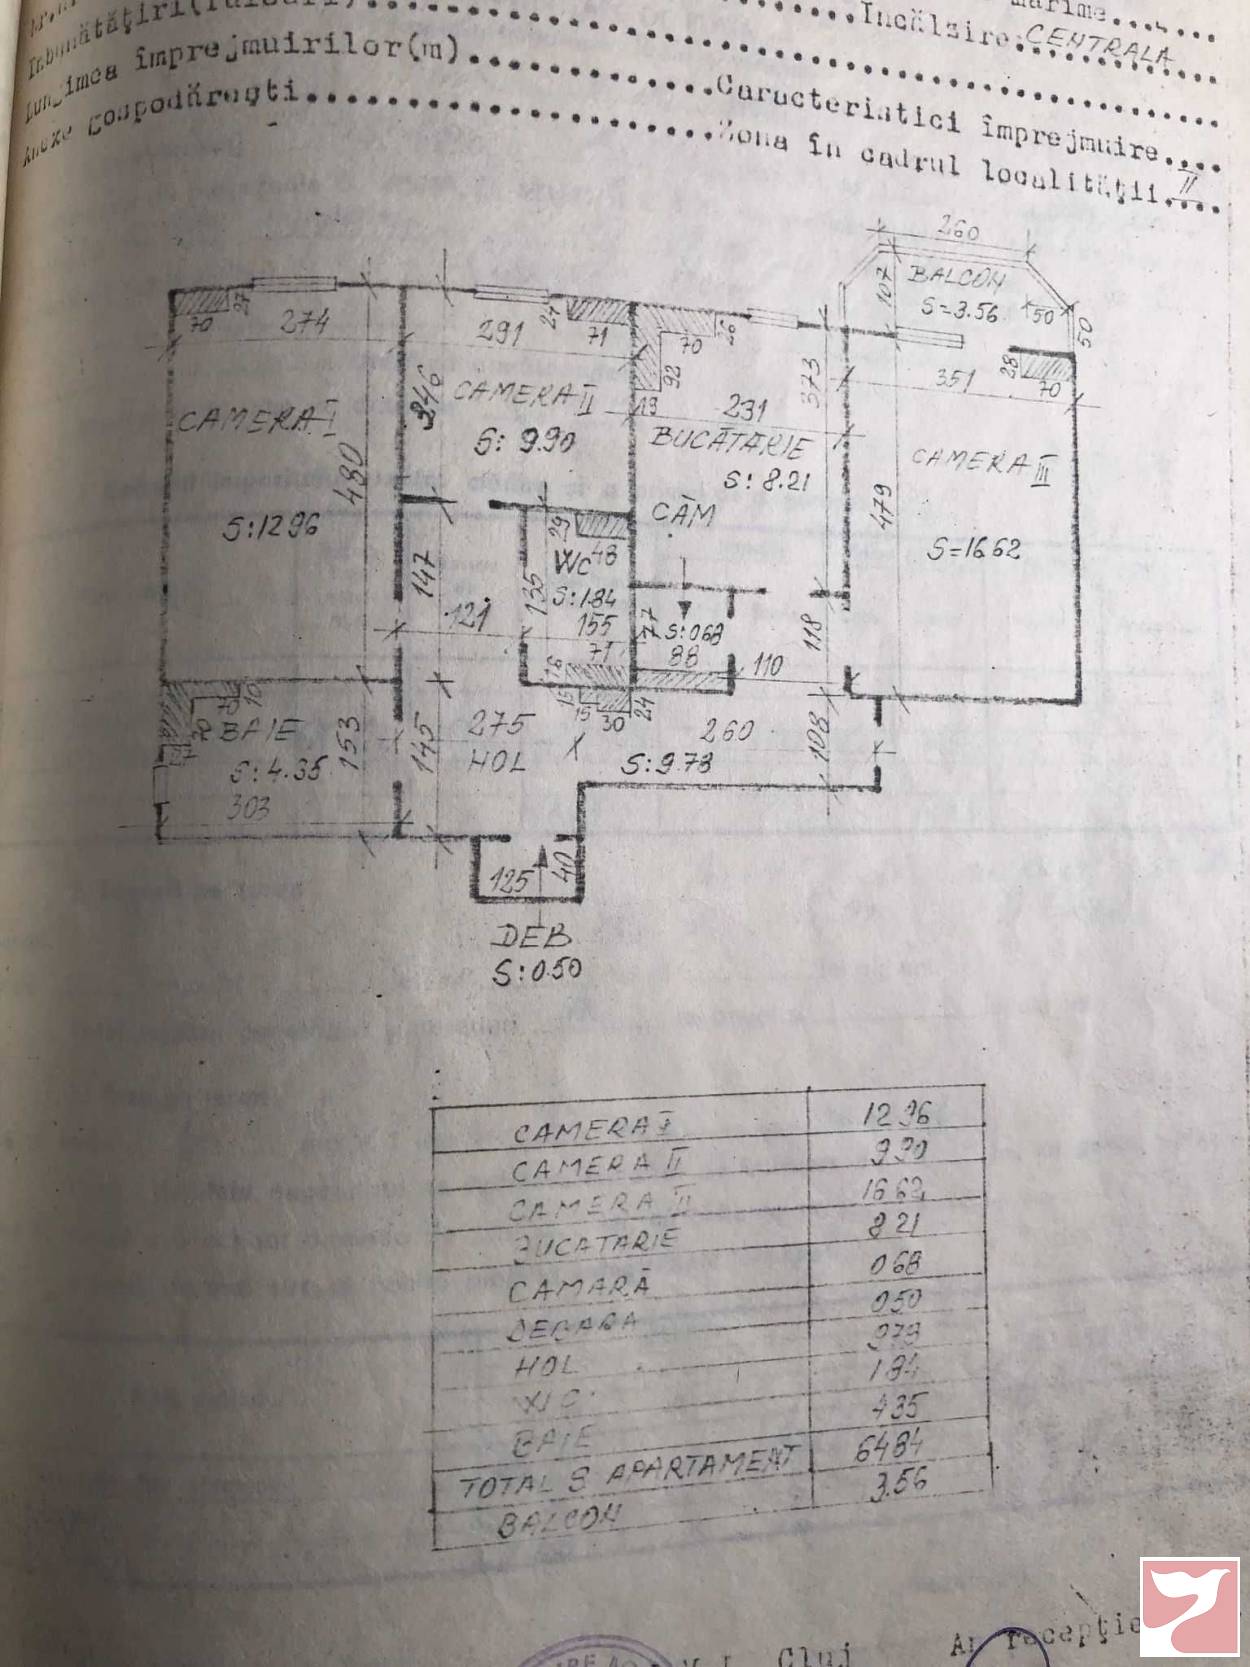 mărime....
Îmbunătățiri
Încălzire: CENTRALA
Lungimea împrejmuirilor(m)
Caracteristici împrejmuire....
Anexe gospodărești
Zona în cadrul localității II
260
BALCON
S=3.56
107
50
50
70
27
274
291
27
71
70
26
92
19
231
373
351
28
70
CAMERA I
S:12.96
480
346
CAMERA II
S: 9.90
BUCĂTARIE
S: 8.21
CĂM
CAMERA III
S=16.62
479
147
121
29
48
WC
S:1.84
135
155
71
16
77
S:0.68
88
110
118
70
10
BAIE
S:4.35
27
303
153
145
275
HOL
15
15
30
24
260
S:9.78
108
125
40
DEB
S:0.50
CAMERA I 12 96
CAMERA II 9.90
CAMERA III 16 62
BUCATARIE 8 21
CAMARĂ 0 68
DEBARA 0 50
HOL 9 78
WC 1 84
BAIE 4 35
TOTAL S APARTAMENT 64 84
BALCON 3.56
Cluj
An recepție